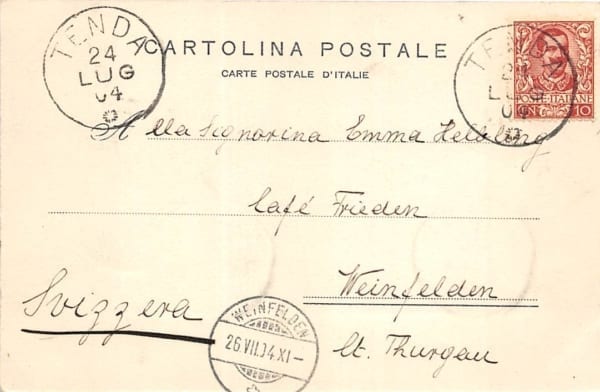 TENDA
24
LUG
04
CARTOLINA POSTALE
CARTE POSTALE D'ITALIE
TENDA
24
LUG
04
POSTE ITALIANE
10
Alla Signorina Emma Helbling
Café Frieden
Weinfelden
Svizzera
Ct. Thurgau
WEINFELDEN
26.VII.04.XI-